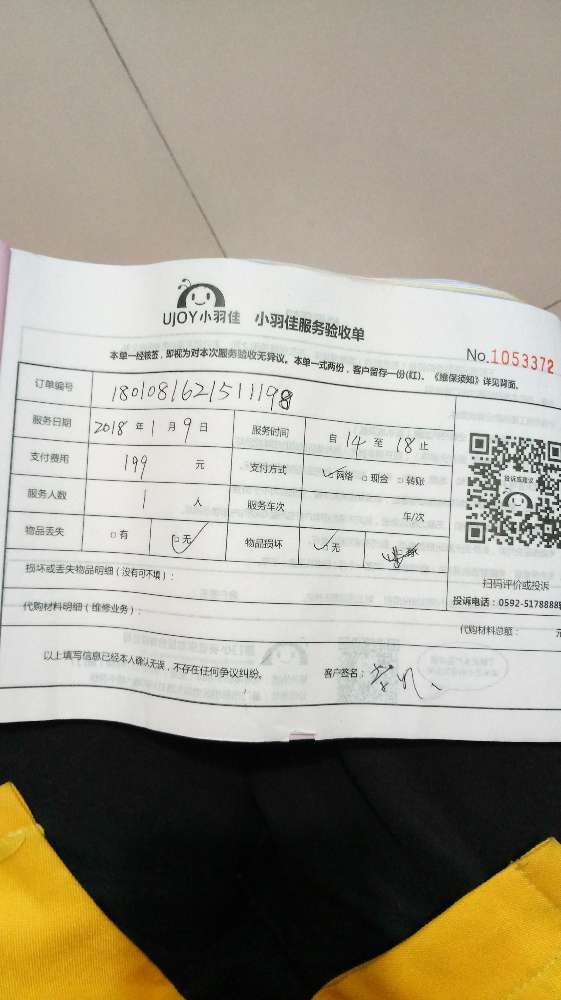 UJOY小羽佳 小羽佳服务验收单
No.1053372
本单一经核签，即视为对本次服务验收无异议。本单一式两份，客户留存一份(红)。《维保须知》详见背面。
订单编号 1801081621511198
服务日期 2018年1月9日 服务时间 自14至18止
支付费用 199元 支付方式 网络 现金 转账
服务人数 1人 服务车次 车/次
物品丢失 有 无 物品损坏 无
投诉或建议
损坏或丢失物品明细(没有可不填)：
扫码评价或投诉
投诉电话：0592-5178888
代购材料明细(维修业务)：
代购材料总额： 元
以上填写信息已经本人确认无误，不存在任何争议纠纷。 客户签名：